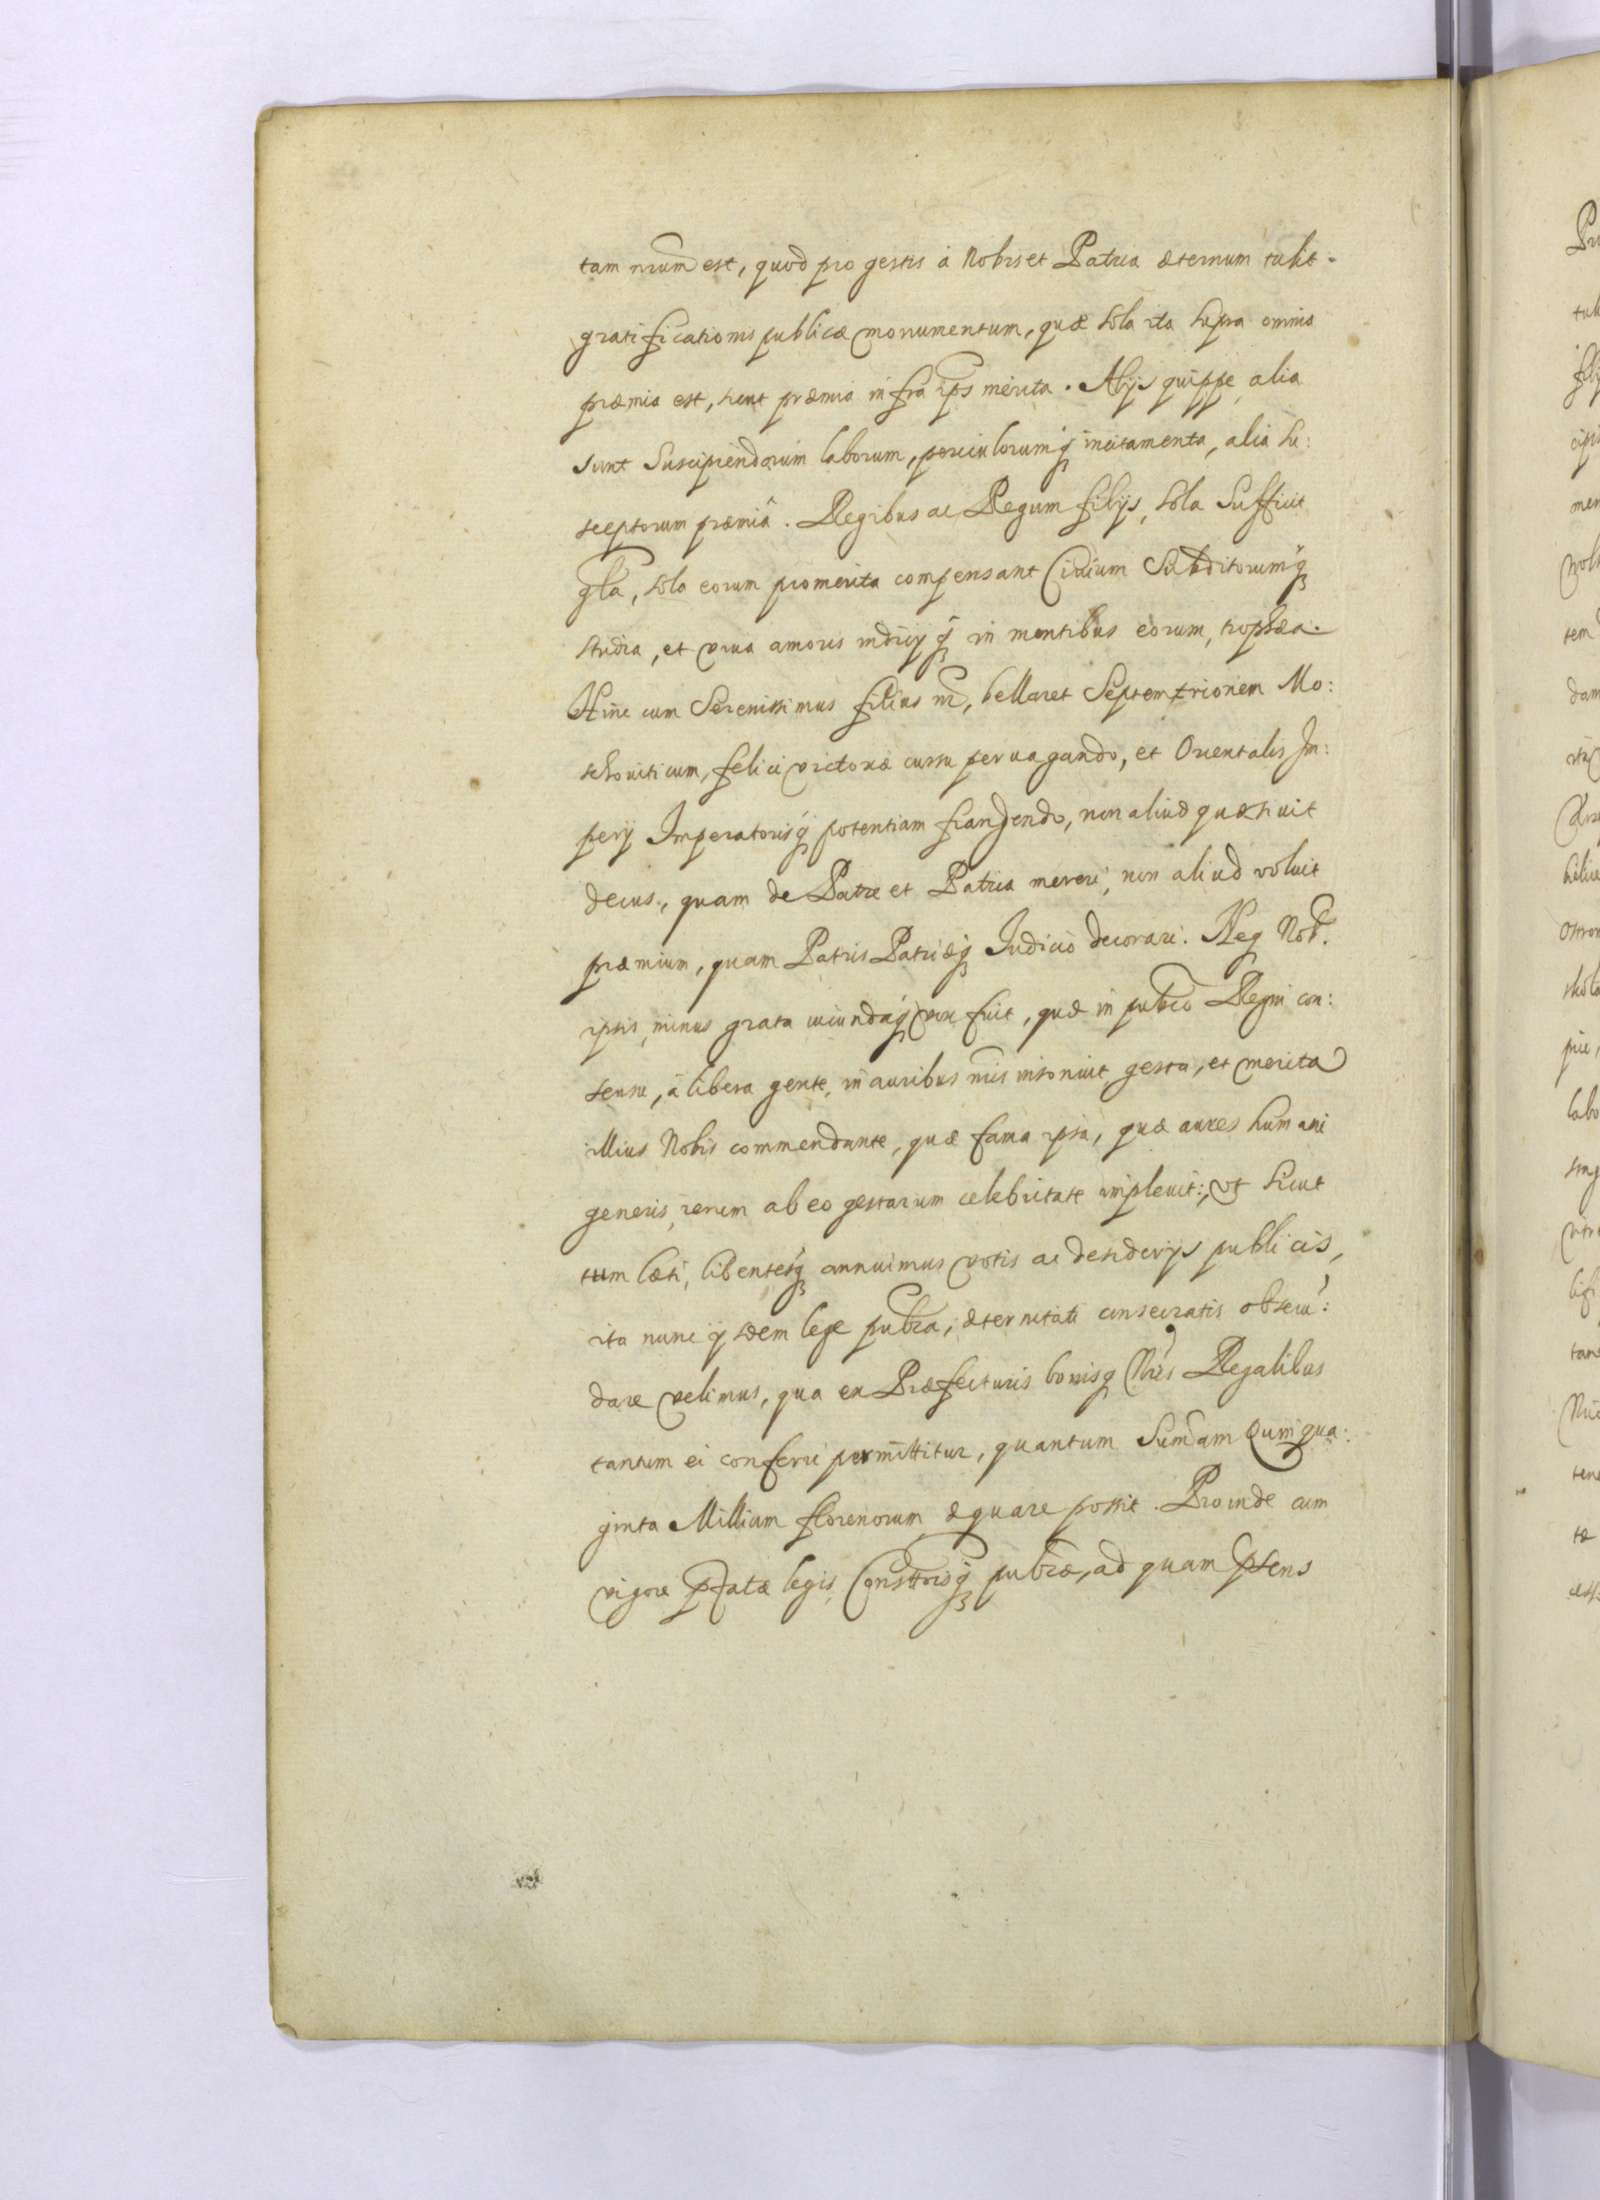 tam nrum est, quod pro gestis à Nobis et Patria æternum tulit
gratificationis publicæ monumentum, quæ sola ita supra omnia
præmia est, sicut præmia infra ips merita. Alijs quippe alia
sunt Suscipiendorum laborum, periculorumq incitamenta, alia su:
sceptorum præmia. Regibus ac Regum filijs, sola Sufficit
gla, sola eorum promerita compensant Ciuium Subditorumq
studia, et viua amoris indicijq in mentibus eorum, trophæa.
Hinc cum Serenissimus filius nr, bellaret Septemtrionem Mo:
schouiticum, felici victoriæ cursu peruagando, et Orientalis Im:
perij Imperatorisq potentiam frangendo, non aliud quæsiuit
decus, quam de Patre et Patria mereri, non aliud voluit
præmium, quam Patris Patriæq Iudicio decorari. Neq Nob.
ipsis, minus grata iucundaq vox fuit, quæ in publco Regni con:
sensu, à libera gente, in auribus nris insonuit gesta, et merita
illius Nobis commendante, quæ fama ipsa, quæ aures humani
generis, rerum ab eo gestarum celebritate impleuit: vt sicut
tum læti, libentesq annuimus votis ac desiderijs publicis,
ita nunc ijsdem lege publca, æternitati consecratis obsecu:
dare velimus, qua ex Præfecturis bonisq Nris Regalibus
tantum ei conferri permittitur, quantum Sumam Quinqua:
ginta Millium florenorum æquare possit. Proinde cum
vigore pfatæ legis, Consttnisq publcæ, ad quam psens